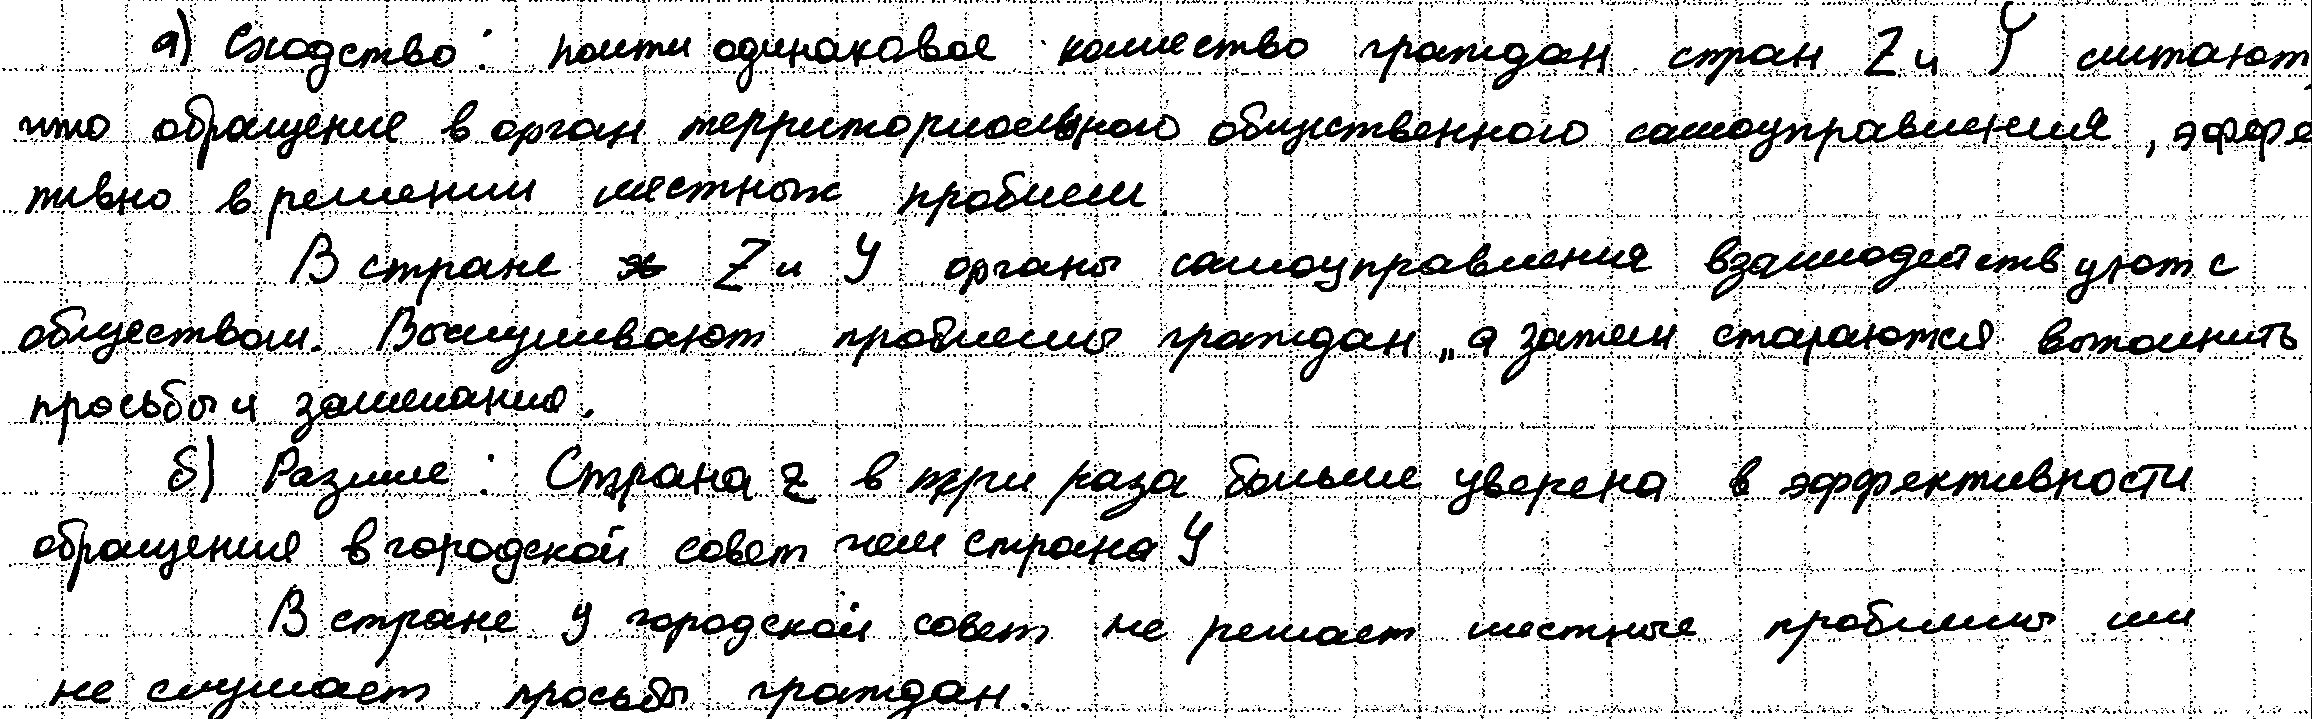 а) Сходство: почти одинаковое количество граждан стран Z и Y считают,
что обращение в орган территориального общественного самоуправления, эффек
тивно в решении местных проблем.
В стране Z и У органы самоуправления взаимодействуют с
обществом. Выслушивают проблемы граждан, а затем стараются выполнить
просьбы и замечания.
б) Различие: Страна Z в три раза больше уверена в эффективности
обращения в городской совет чем страна У
В стране У городской совет не решает местные проблемы или
не слушает просьбы граждан.